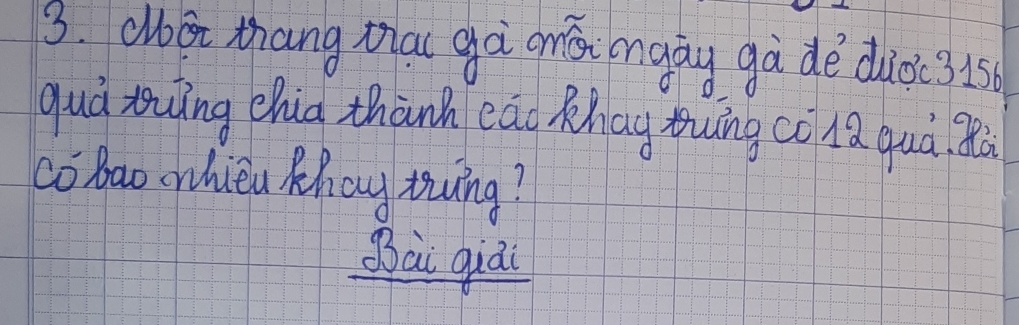 3. Một trang trại gà mỗi ngày gà đẻ được 3156
quả trứng chia thành các khay trứng có 12 quả. Hỏi
có bao nhiêu khay trứng?
Bài giải